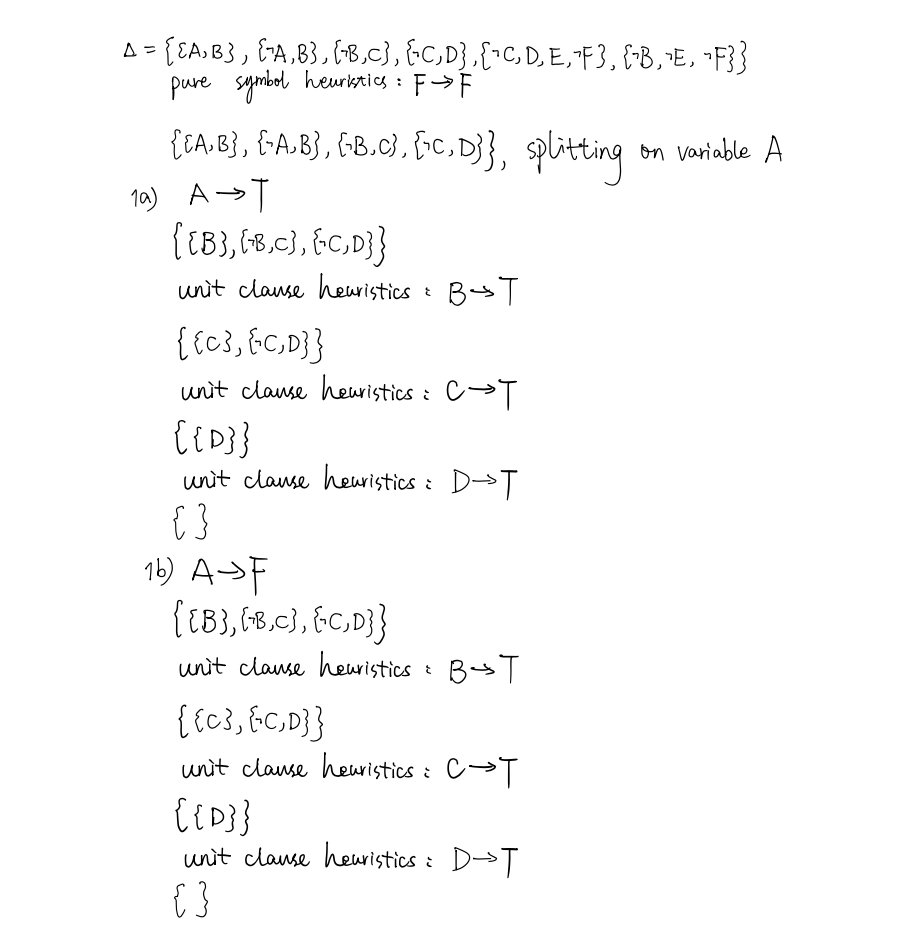 Δ = {{A,B}, {¬A,B}, {¬B,C}, {¬C,D}, {¬C,D,E,¬F}, {¬B,¬E,¬F}}
pure symbol heuristics : F→F
{{A,B}, {¬A,B}, {¬B,C}, {¬C,D}}, splitting on variable A
1a) A→T
{{B},{¬B,C},{¬C,D}}
unit clause heuristics : B→T
{{C},{¬C,D}}
unit clause heuristics : C→T
{{D}}
unit clause heuristics : D→T
{ }
1b) A→F
{{B},{¬B,C},{¬C,D}}
unit clause heuristics : B→T
{{C},{¬C,D}}
unit clause heuristics : C→T
{{D}}
unit clause heuristics : D→T
{ }